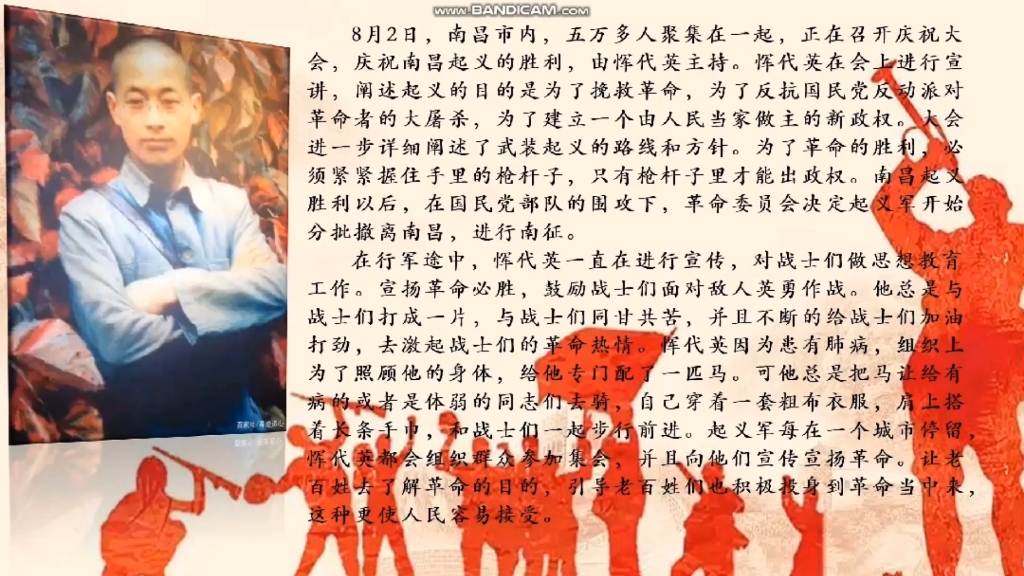 www.BANDICAM.com
8月2日，南昌市内，五万多人聚集在一起，正在召开庆祝大
会，庆祝南昌起义的胜利，由恽代英主持。恽代英在会上进行宣
讲，阐述起义的目的是为了挽救革命，为了反抗国民党反动派对
革命者的大屠杀，为了建立一个由人民当家做主的新政权。大会
进一步详细阐述了武装起义的路线和方针。为了革命的胜利，必
须紧紧握住手里的枪杆子，只有枪杆子里才能出政权。南昌起义
胜利以后，在国民党部队的围攻下，革命委员会决定起义军开始
分批撤离南昌，进行南征。
在行军途中，恽代英一直在进行宣传，对战士们做思想教育
工作。宣扬革命必胜，鼓励战士们面对敌人英勇作战。他总是与
战士们打成一片，与战士们同甘共苦，并且不断的给战士们加油
打劲，去激起战士们的革命热情。恽代英因为患有肺病，组织上
为了照顾他的身体，给他专门配了一匹马。可他总是把马让给有
病的或者是体弱的同志们去骑，自己穿着一套粗布衣服，肩上搭
着长条手巾，和战士们一起步行前进。起义军每在一个城市停留，
恽代英都会组织群众参加集会，并且向他们宣传宣扬革命。让老
百姓去了解革命的目的，引导老百姓们也积极投身到革命当中来，
这种更使人民容易接受。